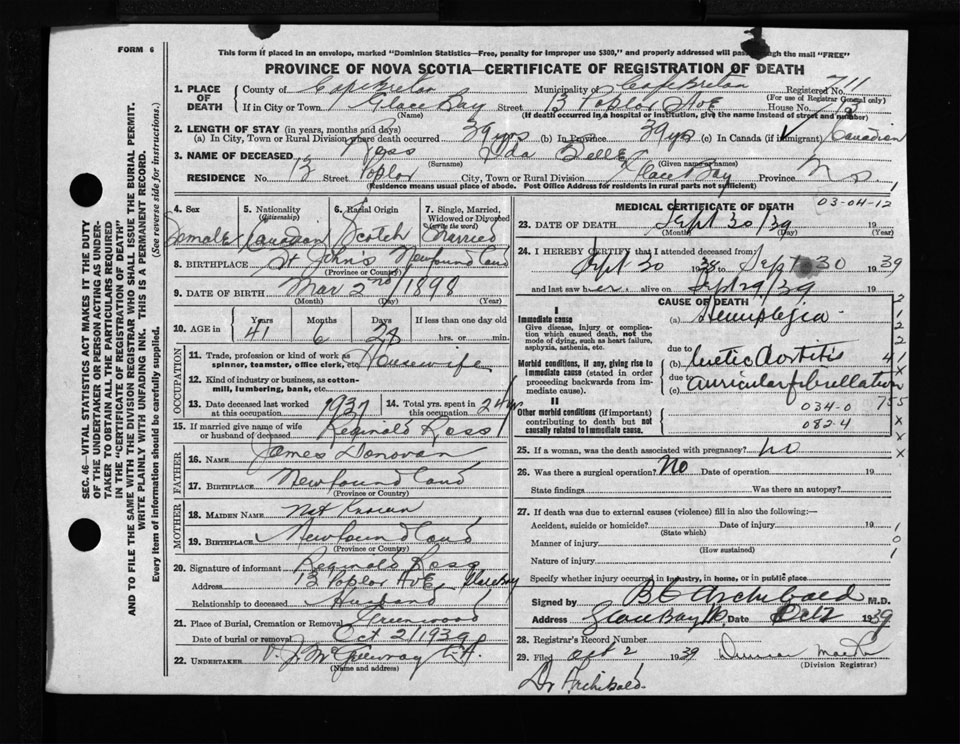 FORM 6
This form if placed in an envelope, marked "Dominion Statistics—Free, penalty for improper use $300," and properly addressed will pass through the mail "FREE"
PROVINCE OF NOVA SCOTIA—CERTIFICATE OF REGISTRATION OF DEATH
1. PLACE OF DEATH County of Cape Breton Municipality of Cape Breton Registered No. 711
(For use of Registrar General only)
If in City or Town Glace Bay Street 13 Poplar Ave House No. 13
(Name) (If death occurred in a hospital or institution, give the name instead of street and number)
2. LENGTH OF STAY (in years, months and days)
(a) In City, Town or Rural Division where death occurred 39 yrs (b) In Province 39 yrs (c) In Canada (if immigrant) Canadian
3. NAME OF DECEASED Ross Ida Belle
(Surname) (Given name or names)
RESIDENCE No. 13 Street Poplar City, Town or Rural Division Glace Bay Province N.S.
(Residence means usual place of abode. Post Office Address for residents in rural parts not sufficient)
4. Sex 5. Nationality (Citizenship) 6. Racial Origin 7. Single, Married, Widowed or Divorced (write the word)
Female Canadian Scotch Married
8. BIRTHPLACE St John's Newfoundland
(Province or Country)
9. DATE OF BIRTH Mar 2nd/1898
(Month) (Day) (Year)
10. AGE in Years Months Days If less than one day old
41 6 28 hrs. or min.
OCCUPATION
11. Trade, profession or kind of work as spinner, teamster, office clerk, etc. Housewife
12. Kind of industry or business, as cotton-mill, lumbering, bank, etc.
13. Date deceased last worked at this occupation 1937 14. Total yrs. spent in this occupation 24 yrs
15. If married give name of wife or husband of deceased Reginald Ross
FATHER
16. NAME James Donovan
17. BIRTHPLACE Newfoundland
(Province or Country)
MOTHER
18. MAIDEN NAME Not Known
19. BIRTHPLACE Newfoundland
(Province or Country)
20. Signature of informant Reginald Ross
Address 13 Poplar Ave, Glace Bay
Relationship to deceased Husband
21. Place of Burial, Cremation or Removal Greenwood
Date of burial or removal Oct 2/1939
22. UNDERTAKER V. J. McGillivray
(Name and address)
MEDICAL CERTIFICATE OF DEATH
03-04-12
23. DATE OF DEATH Sept 30/39
(Month) (Day)
24. I HEREBY CERTIFY that I attended deceased from
Sept 30 1938 to Sept 30 1939
and last saw her alive on Sept 29/39 19
CAUSE OF DEATH
I
Immediate cause
Give disease, injury or complication which caused death, not the mode of dying, such as heart failure, asphyxia, asthenia, etc.
(a) Hemiplegia
due to
Morbid conditions, if any, giving rise to immediate cause (stated in order proceeding backwards from immediate cause).
(b) Luetic Aortitis
due to
(c) auricular fibrellation
II
Other morbid conditions (if important) contributing to death but not causally related to immediate cause.
034-0
082-4
25. If a woman, was the death associated with pregnancy? No
26. Was there a surgical operation? No Date of operation 19
State findings Was there an autopsy?
27. If death was due to external causes (violence) fill in also the following:—
Accident, suicide or homicide? Date of injury 19
(State which)
Manner of injury
(How sustained)
Nature of injury
Specify whether injury occurred in industry, in home, or in public place
Signed by B C Archibald M.D.
Address Glace Bay Date Oct 2 1939
28. Registrar's Record Number
29. Filed Oct 2 1939 Duncan
(Division Registrar)
Dr Archibald.
SEC. 46—VITAL STATISTICS ACT MAKES IT THE DUTY OF THE UNDERTAKER OR PERSON ACTING AS UNDERTAKER TO OBTAIN ALL THE PARTICULARS REQUIRED IN THE "CERTIFICATE OF REGISTRATION OF DEATH" AND TO FILE THE SAME WITH THE DIVISION REGISTRAR WHO SHALL ISSUE THE BURIAL PERMIT.
WRITE PLAINLY WITH UNFADING INK. THIS IS A PERMANENT RECORD.
Every item of information should be carefully supplied. (See reverse side for instructions.)